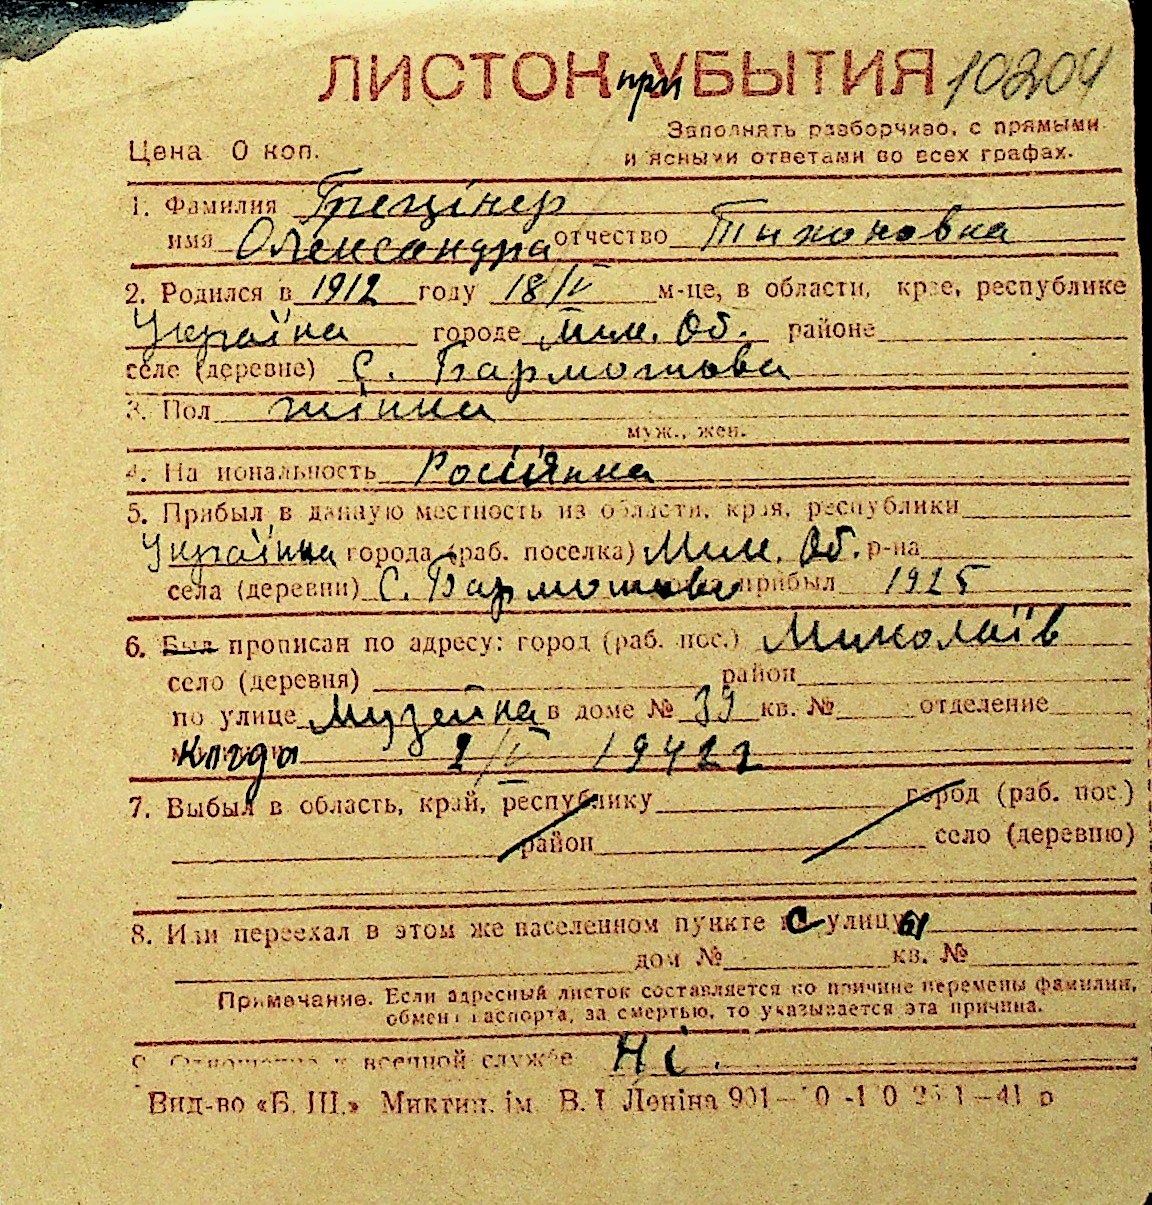 ЛИСТОК при УБЫТИЯ 10204
Заполнять разборчиво, с прямыми
Цена 0 коп.
и ясными ответами во всех графах.
1. Фамилия Грецінер
имя Олександра отчество Тихоновка
2. Родился в 1912 году 18/V м-це, в области, крае, республике
Україна городе Мик. Об. районе
селе (деревне) С. Бармотова
3. Пол жінка
муж., жен.
4. На иональность Росіянка
5. Прибыл в данную местность из области, края, республики
Українка города (раб. поселка) Мик. Об. р-на
села (деревни) С. Бармотово прибыл 1925
6. Был прописан по адресу: город (раб. пос.) Миколаїв
село (деревня) район
по улице Музейна в доме № 39 кв. № отделение
когда 2/V 1942
7. Выбыл в область, край, республику город (раб. пос.)
район село (деревню)
8. Или переехал в этом же населенном пункте с улицы
дом № кв. №
Примечание. Если адресный листок составляется по причине перемены фамилии,
обмен паспорта, за смертью, то указывается эта причина.
9. Отношение к военной службе Ні.
Вид-во «Б. Ш.» Миктип. ім В. І Леніна 901